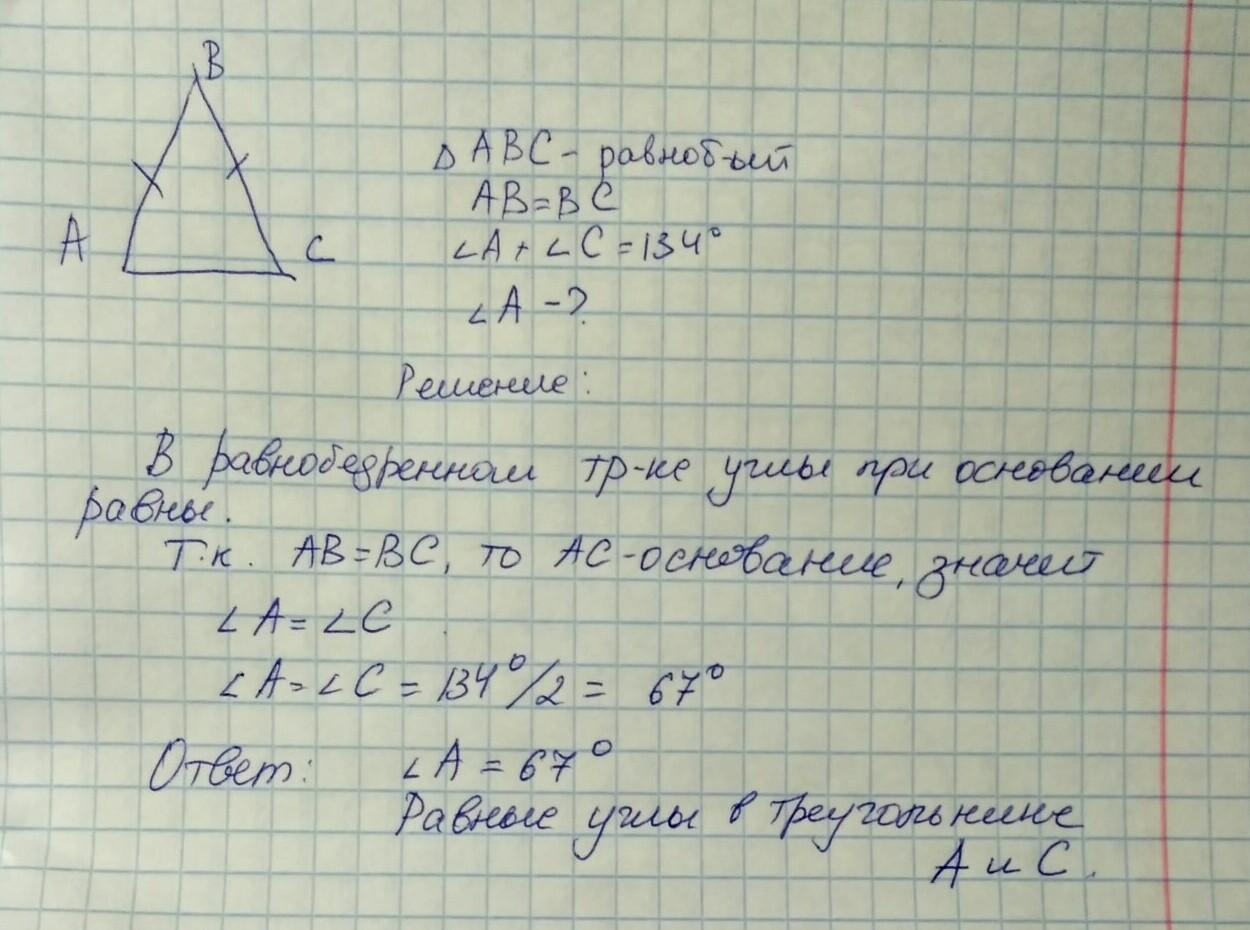 B
A
C
Δ ABC - равноб-ый
AB=BC
∠A + ∠C = 134°
∠A - ?
Решение:
В равнобедренном тр-ке углы при основании
равны.
Т.к. AB=BC, то AC-основание, значит
∠A = ∠C
∠A = ∠C = 134°/2 = 67°
Ответ: ∠A = 67°
Равные углы в треугольнике
A и C.